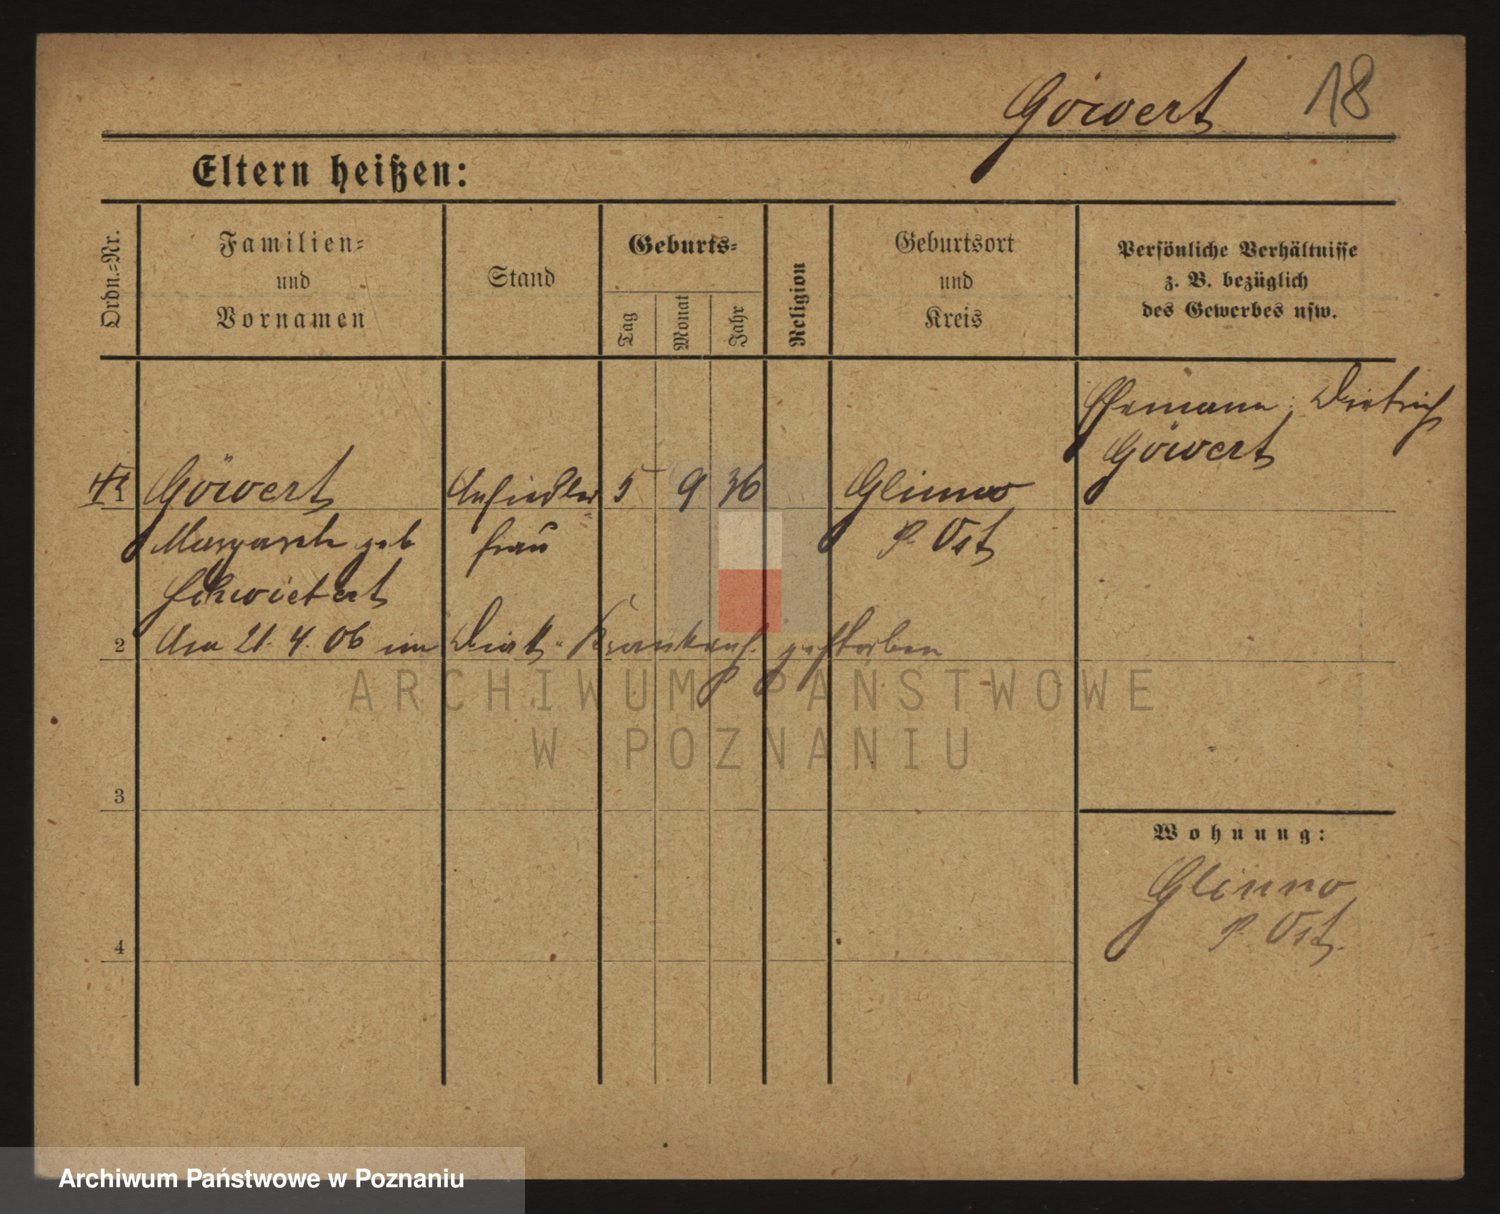 Göwert 18
Eltern heißen:
Ordn.=Nr.
Familien=
und
Vornamen
Stand
Geburts=
Tag
Monat
Jahr
Religion
Geburtsort
und
Kreis
Persönliche Verhältnisse
z. B. bezüglich
des Gewerbes usw.
Ehemann: Dietrich
Göwert
Göwert Ansiedler 5 9 36 Glinno
Margarete geb frau P. Ost
Schwietert
2 Am 21. 4. 06 im Diak. Krankenh. gestorben
ARCHIWUM PAŃSTWOWE
W POZNANIU
3
Wohnung:
Glinno
P. Ost.
4
Archiwum Państwowe w Poznaniu